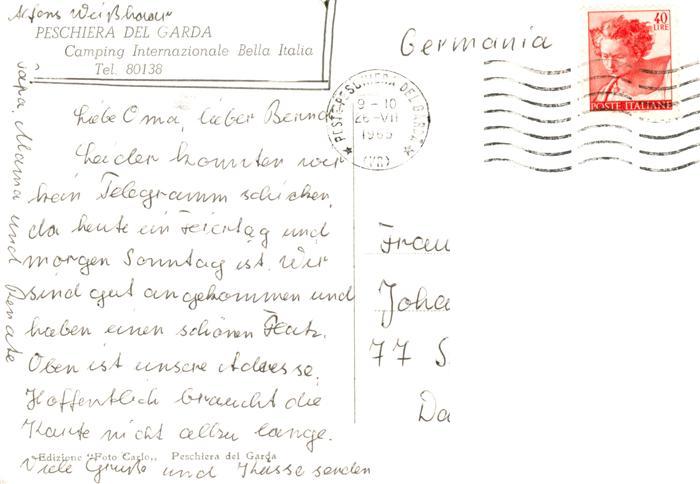 Alfons Weißhaar
PESCHIERA DEL GARDA
Camping Internazionale Bella Italia
Tel. 80138
Germania
40
LIRE
POSTE ITALIANE
PESCHIERA DEL GARDA
9-10
26-VII
1965
(VR)
Liebe Oma, lieber Bernd
Leider konnten wir
kein Telegramm schicken,
da heute ein Feiertag und
morgen Sonntag ist. Wir
sind gut angekommen und
haben einen schönen Platz.
Oben ist unsere Adresse.
Hoffentlich braucht die
Karte nicht allzu lange.
Viele Grüße und Küsse senden
Papa, Mama und Renate
Edizione "Foto Carlo„ Peschiera del Garda
Frau
Joha
77 S
Da